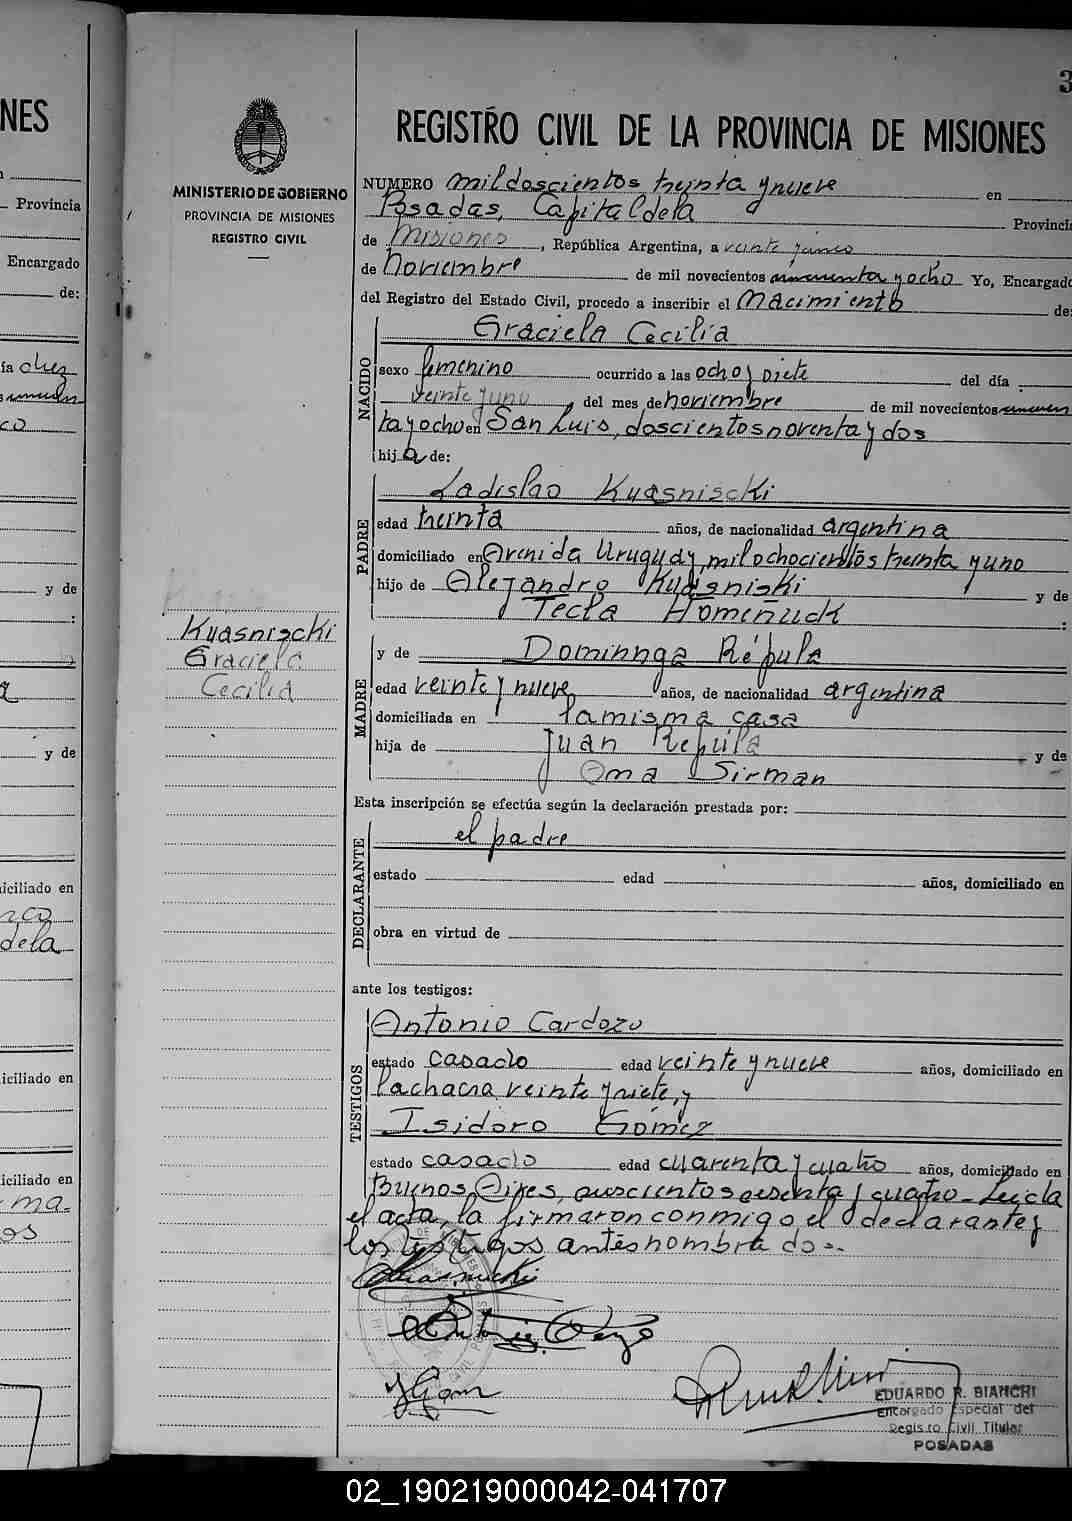 NES
Provincia
Encargado
de:
ía diez
co
y de
:
a
y de
iciliado en
dela
iciliado en
iciliado en
ma.
os
MINISTERIO DE GOBIERNO
PROVINCIA DE MISIONES
REGISTRO CIVIL
Kuasniscki
Graciela
Cecilia
3
REGISTRO CIVIL DE LA PROVINCIA DE MISIONES
NUMERO mil doscientos treinta y nueve en
Posadas, Capital de la Provincia
de Misiones, República Argentina, a veinte y
de Noviembre de mil novecientos cincuenta y ocho Yo, Encargado
del Registro del Estado Civil, procedo a inscribir el Nacimiento de:
NACIDO
Graciela Cecilia
sexo femenino ocurrido a las ocho y siete del día
veinte y uno, del mes de noviembre de mil novecientos cincuen
ta y ocho en San Luis, doscientos noventa y dos
hija de:
PADRE
Ladislao Kuasniscki
edad treinta años, de nacionalidad argentina
domiciliado en Avenida Uruguay, mil ochocientos treinta y uno
hijo de Alejandro Kuasniski y de
Tecla Homeñuck :
MADRE
y de Dominnga Répula
edad veinte y nueve años, de nacionalidad argentina
domiciliada en la misma casa
hija de Juan Repula y de
Ona Sirman
Esta inscripción se efectúa según la declaración prestada por:
DECLARANTE
el padre
estado edad años, domiciliado en
obra en virtud de
ante los testigos:
TESTIGOS
Antonio Cardozo
estado casado edad veinte y nueve años, domiciliado en
la chacra veinte y siete, y
Isidoro Gómez
estado casado edad cuarenta y cuatro años, domiciliado en
Buenos Aires, doscientos sesenta y cuatro - Leida
el acta, la firmaron conmigo el declarante y
los testigos antes nombrados.
EDUARDO R. BIANCHI
Encargado Especial del
Registro Civil Titular
POSADAS
02_190219000042-041707